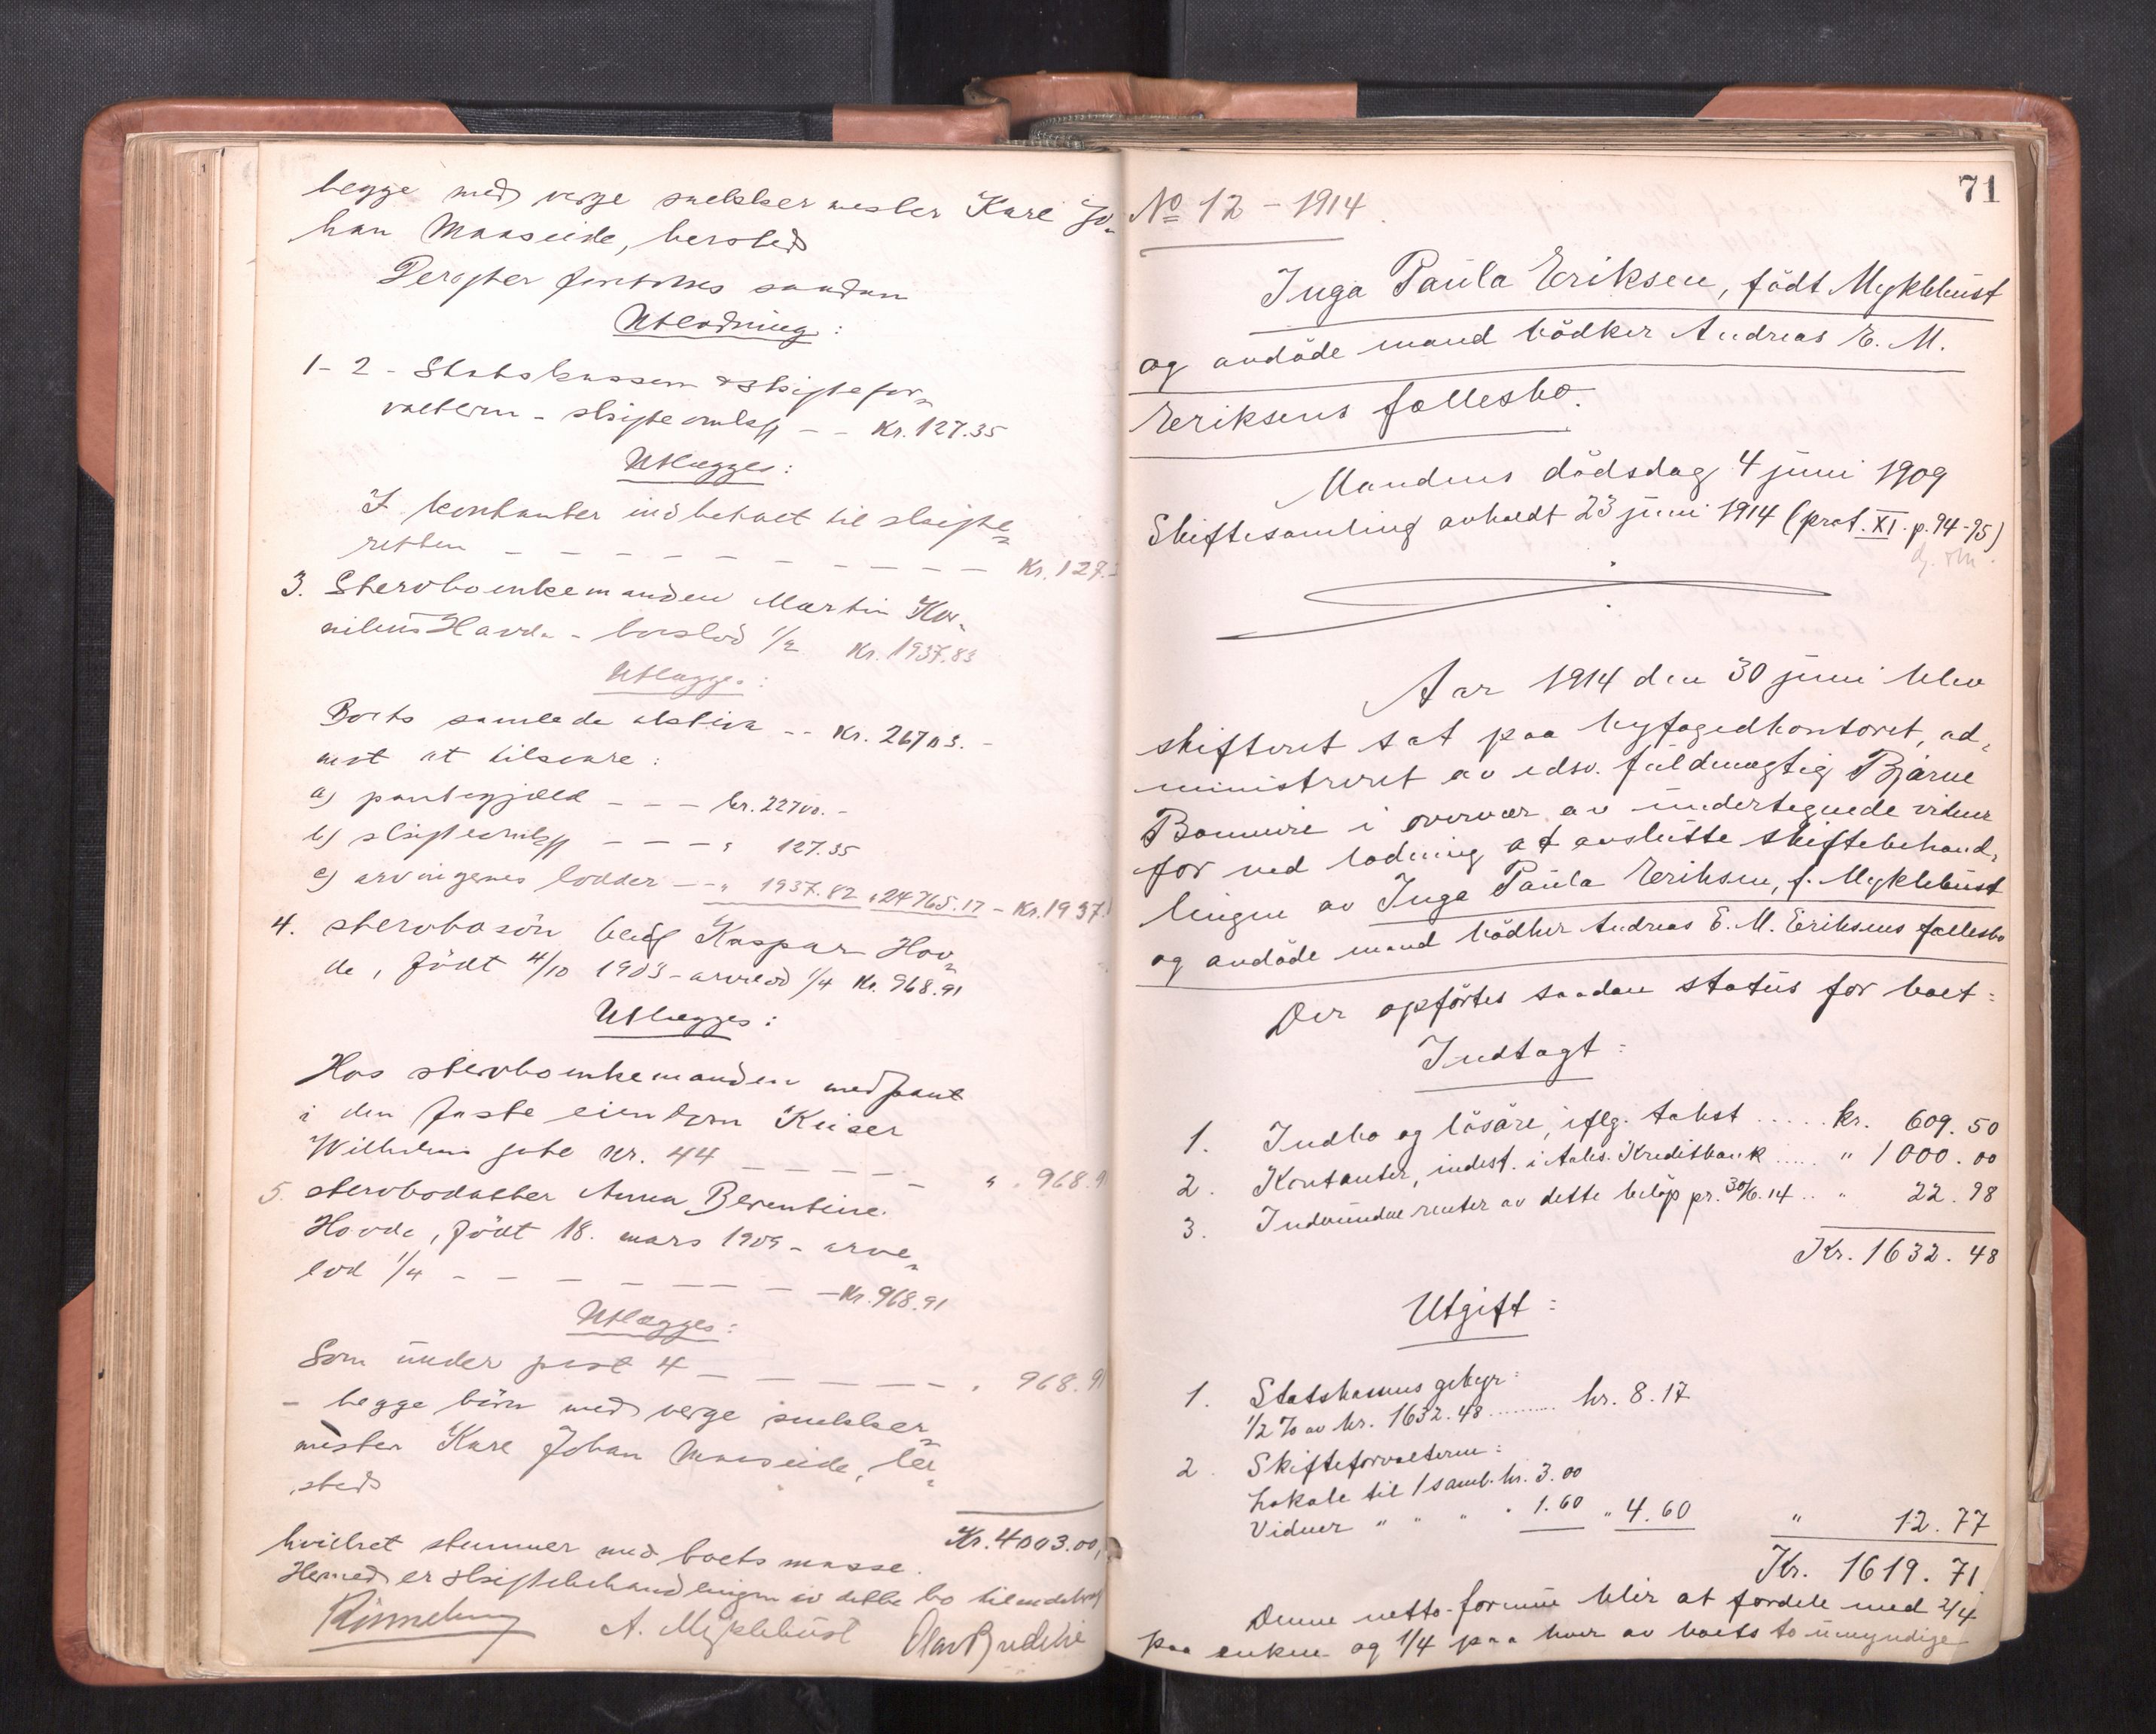 begge med verge snekkermester Karl Jo-
han Maaseide, hersteds
Derefter foretokes saadan
Utlodning:
1-2 - Statskassen & skiftefor-
valteren - skifteomkostn -- Kr. 127.35
Utlægges:
I kontanter indbetalt til skifte-
retten - - - - - - - - - Kr. 127.
3. Stervboenkemanden Martin Kor-
nilius Hovde - boslod 1/2 Kr. 1937.83
Utlægges:
Boets samlede aktiva -- Kr. 26703.-
mot at tilsvare:
a) pantegjæld - - - kr. 22700.-
b) skifteomk - - - " 127.35
c) arvingenes lodder -- " 1937.82 " 24765.17 - Kr. 1937.
4. stervbosön Kaspar Hov-
de, födt 4/10 1903 - arvelod 1/4 Kr. 968.91
Utlægges:
Hos stervboenkemanden med pant
i den faste eiendom Keiser
Wilhelms gate nr. 44 - - - - - " 968.91
5. stervbodatter Anna Berentine
Hovde, födt 18. mars 1909 - arve-
lod 1/4 - - - - - - - - Kr. 968.91
Utlægges:
Som under post 4 - - - - - " 968.91
- begge börn med verge snekker-
mester Karl Johan Maaseide, her-
steds
Kr. 4003.00,
hvilket stemmer med boets masse.
Hermed er skiftebehandlingen av dette bo tilendebragt
A. Myklebust
71
No 12 - 1914.
Inga Paula Eriksen, födt Myklebust
og avdöde mand bödker Andreas E. M.
Eriksens fællesbo.
Mandens dödsdag 4 juni 1909
Skiftesamling avholdt 23 juni 1914 (prot. XI. p. 94-95)
Aar 1914 den 30 juni blev
skifteret sat paa byfogedkontoret, ad-
ministreret av edsv. fuldmægtig Bjarne
Bonnevie i overvær av undertegnede vidner
for ved lodning at avslutte skiftebehand-
lingen av Inga Paula Eriksen, f. Myklebust
og avdöde mand bödker Andreas E. M. Eriksens fællesbo
Der opförtes saadan status for boet:
Indtægt:
1. Indbo og lösöre, iflg. takst ..... kr. 609.50
2. Kontanter, indest. i Aales. Kreditbank ..... " 1000.00
3. Indvundne renter av dette belöp pr. 30/6.14 .. " 22.98
Kr. 1632.48
Utgift:
1. Statskassens gebyr:
1/2 % av kr. 1632.48 ......... kr. 8.17
2. Skifteforvalteren:
Lokale til 1 saml. kr. 3.00
Vidner " " " " 1.60 " 4.60 " 12.77
Kr. 1619.71
Denne netto-formue blir at fordele med 2/4
paa enken og 1/4 paa hver av boets to umyndige